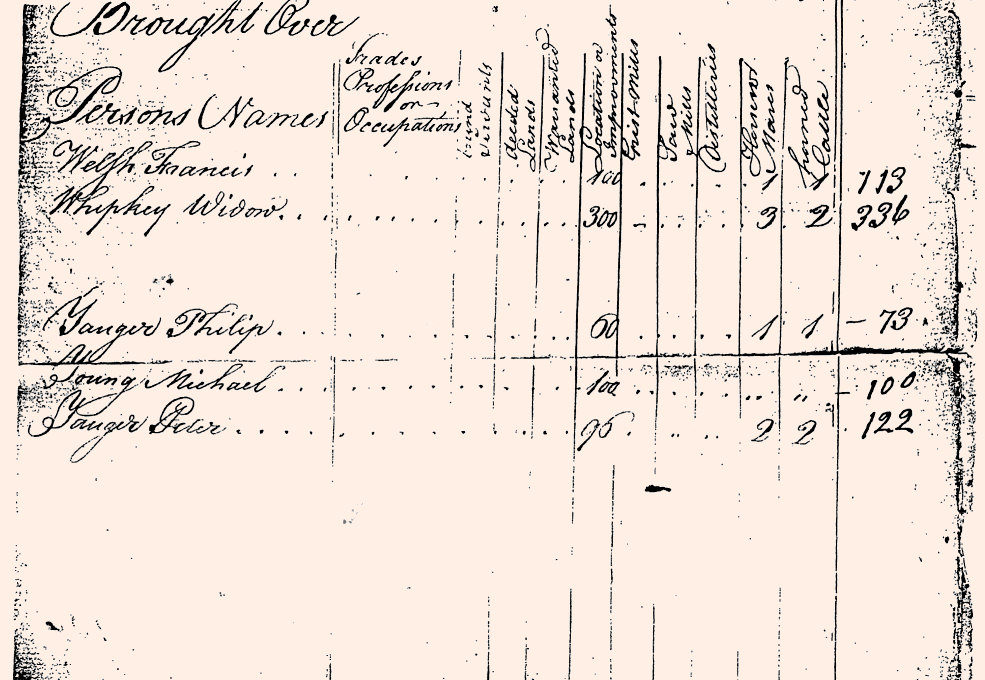 Brought Over
Persons Names Trades Professions or Occupations Bound Servants deeded Lands Warranted Lands Location or Improvements Grist Mills Saw Mills Distilleries Horses & Mares horned Cattle
Welsh Francis . . 100 . . . 1 1 113
Whiphey Widow . . . 300 . . . 3 2 336
Yauger Philip . . . 60 . . . 1 1 – 73
Young Michael . . . 100 . . . " " – 100
Yauger Peter . . . 96 . " . . 2 2 122